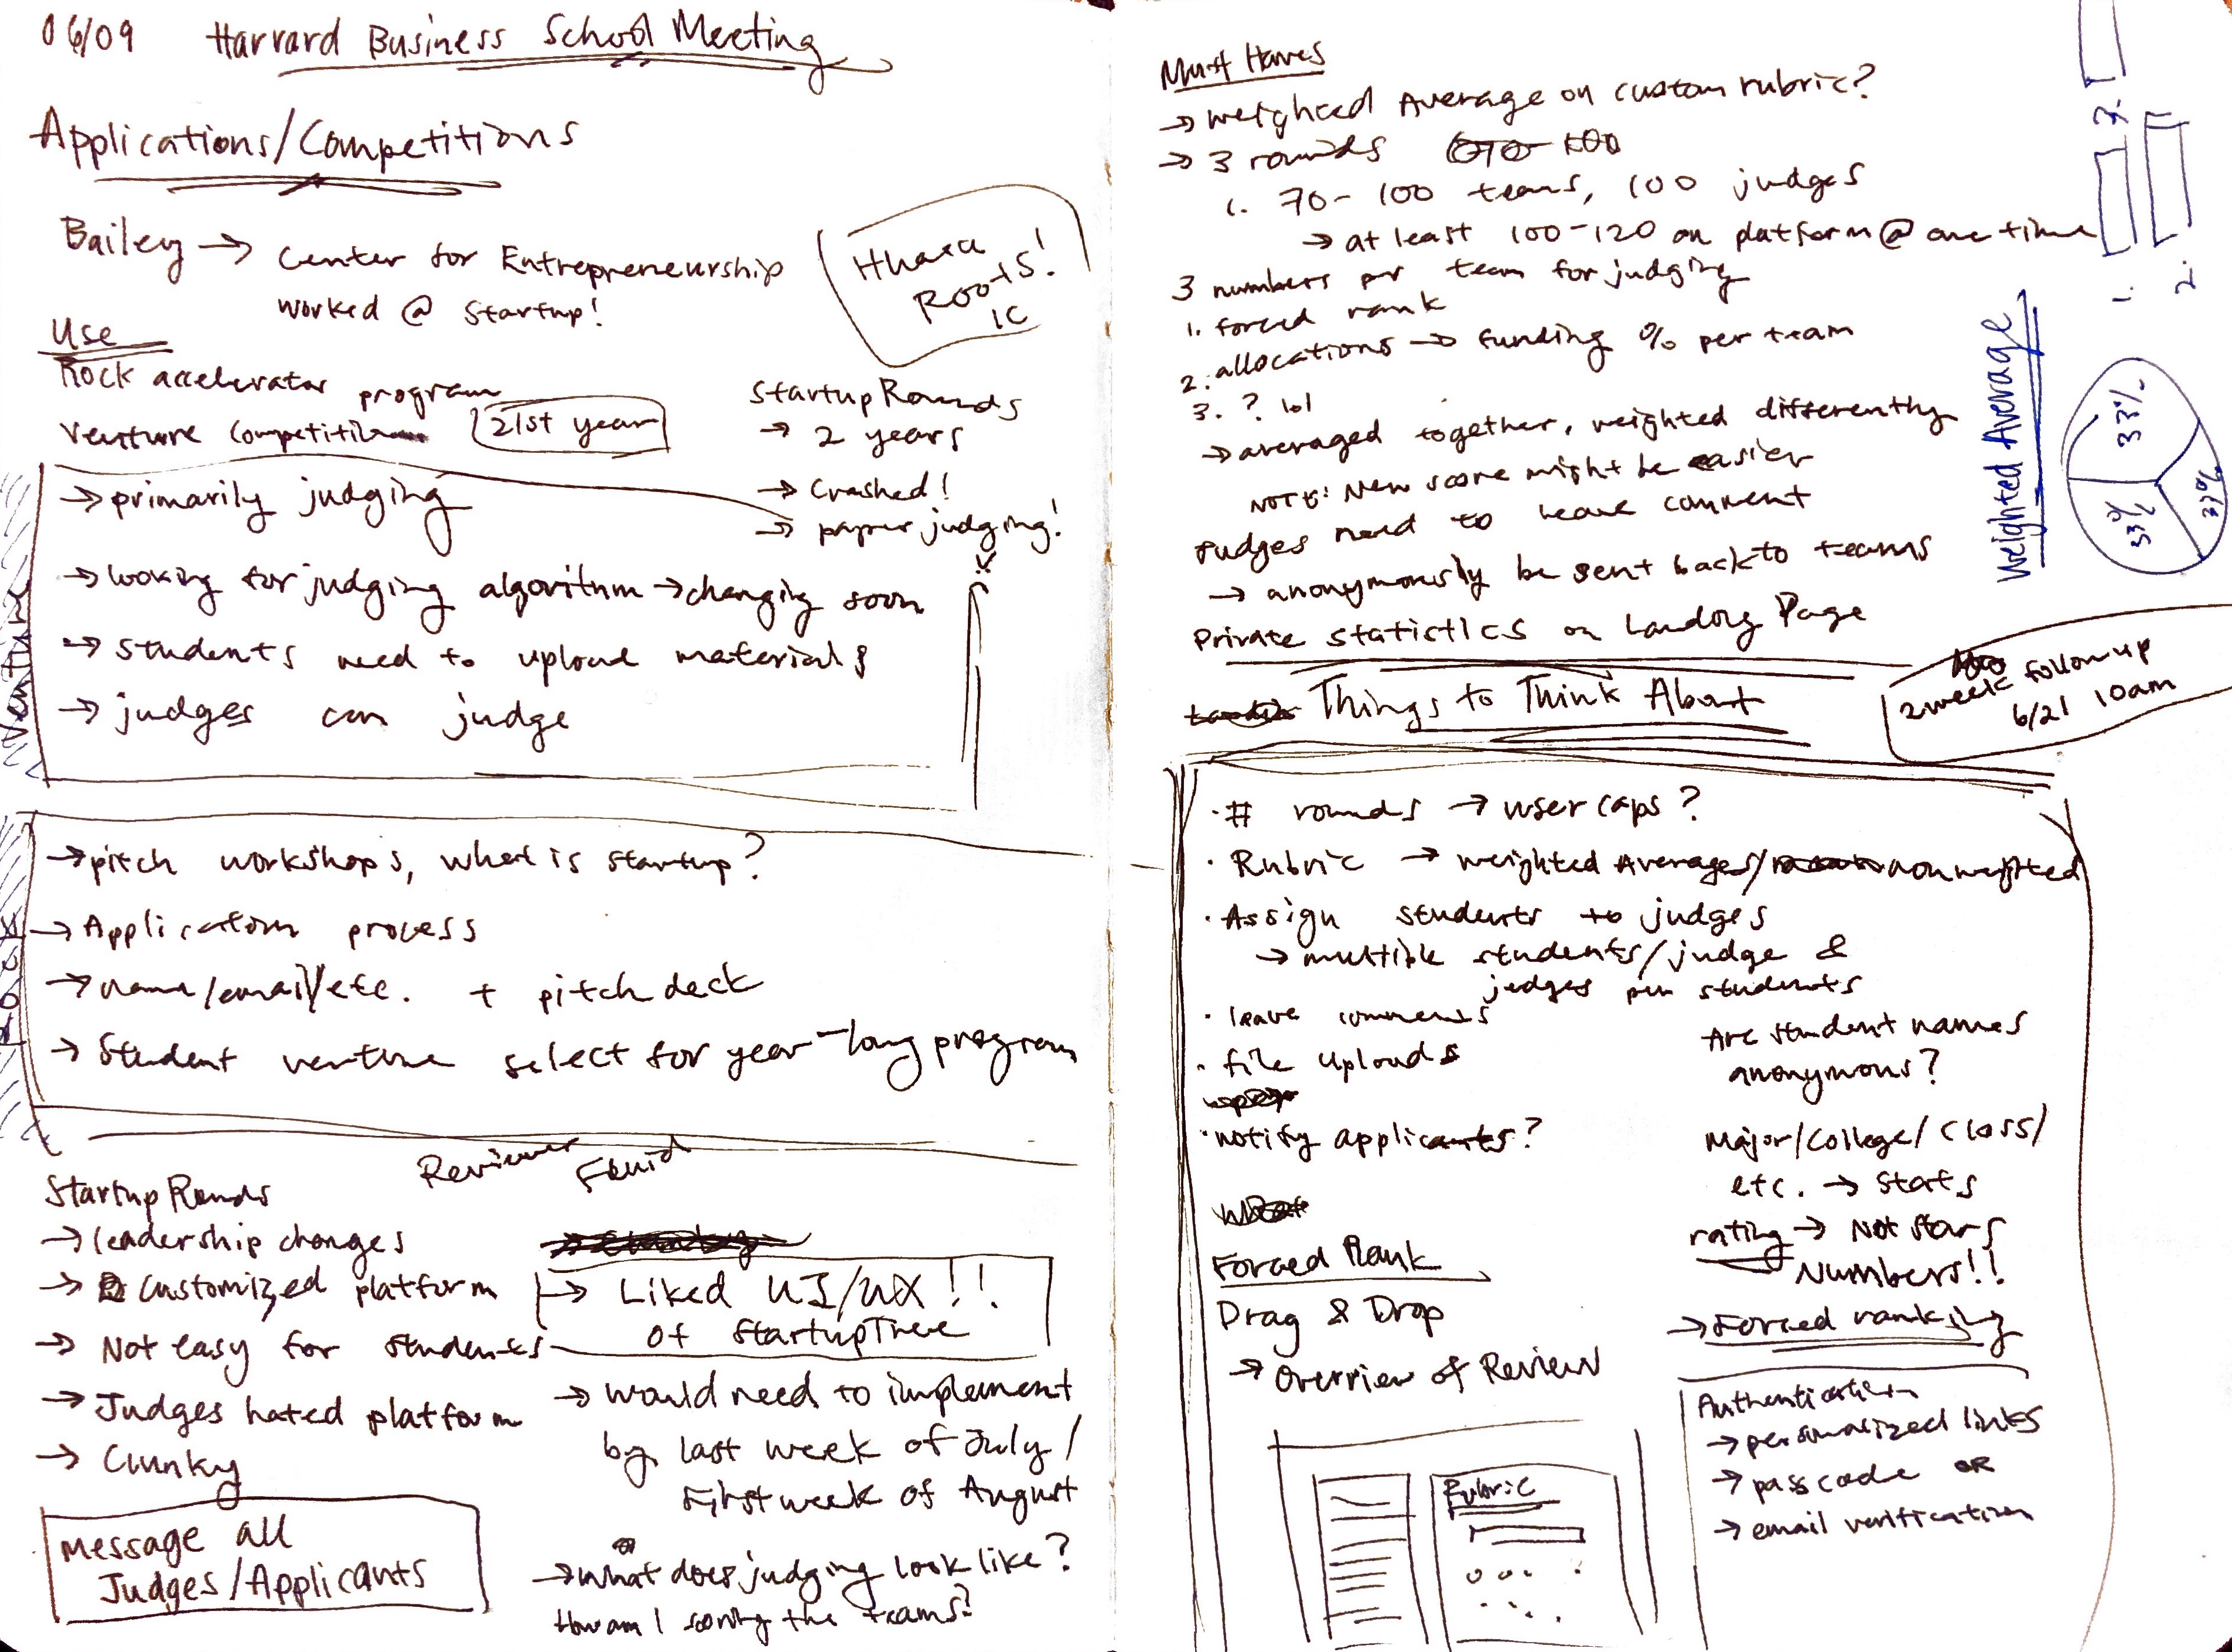 06/09 Harvard Business School Meeting
Applications/Competitions
Bailey → Center for Entrepreneurship
worked @ startup!
Ithaca
Roots!
IC
Use
Rock accelerator program
Venture Competition
21st year
StartupRounds
→ 2 years
→ Crashed!
→ paper judging!
Venture
→ primarily judging
→ looking for judging algorithm → changing soon
→ students need to upload materials
→ judges can judge
Rock
→ pitch workshops, what is startup?
→ Application process
→ name/email/etc. + pitch deck
→ Student venture select for year-long program
Reviewer
Fluid
StartupRounds
→ leadership changes
→ Customized platform
→ Not easy for students
→ Judges hated platform
→ Clunky
Message all
Judges/Applicants
→ Liked UI/UX!!
of StartupTree
→ would need to implement
by last week of July/
First week of August
→ what does judging look like?
How am I the teams?
Must Haves
→ weighted Average on custom rubric?
→ 3 rounds
1. 70-100 teams, 100 judges
→ at least 100-120 on platform @ one time
3 numbers per team for judging
1. forced rank
2. allocations → funding % per team
3. ? lol
→ averaged together, weighted differently
NOTE: New score might be easier
Judges need to leave comment
→ anonymously be sent back to teams
Private statistics on Landing Page
Weighted Average
33%
33%
33%
1.
2.
3.
Things to Think About
2 week followup
6/21 10am
· # rounds → user caps?
· Rubric → weighted Averages/nonweighted
· Assign students to judges
→ multiple students/judge &
judges per students
· leave comments
· file uploads
· notify applicants?
Are student names
anonymous?
Major/College/Class/
etc. → Stats
rating → Not stars
Numbers!!
→ Forced ranking
Forced Rank
Drag & Drop
→ Overview of Review
Rubric
Authentication
→ personalized links
→ passcode OR
→ email verification